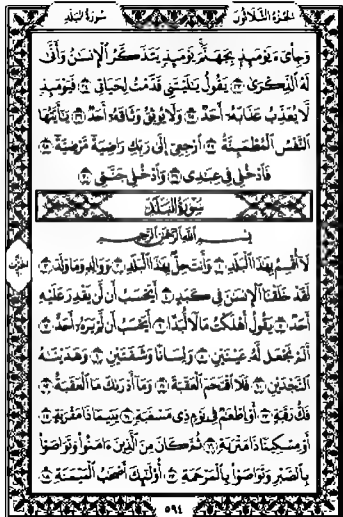 الجزء الثلاثون
سورة البلد
وَجِا۟ىٓءَ يَوْمَئِذٍۭ بِجَهَنَّمَۚ يَوْمَئِذٍ يَتَذَكَّرُ ٱلْإِنسَٰنُ وَأَنَّىٰ
لَهُ ٱلذِّكْرَىٰ ٢٣ يَقُولُ يَٰلَيْتَنِى قَدَّمْتُ لِحَيَاتِى ٢٤ فَيَوْمَئِذٍ
لَّا يُعَذِّبُ عَذَابَهُۥٓ أَحَدٌ ٢٥ وَلَا يُوثِقُ وَثَاقَهُۥٓ أَحَدٌ ٢٦ يَٰٓأَيَّتُهَا
ٱلنَّفْسُ ٱلْمُطْمَئِنَّةُ ٢٧ ٱرْجِعِىٓ إِلَىٰ رَبِّكِ رَاضِيَةً مَّرْضِيَّةً ٢٨
فَٱدْخُلِى فِى عِبَٰدِى ٢٩ وَٱدْخُلِى جَنَّتِى ٣٠
سُورَةُ البَلَدِ
بِسْمِ ٱللَّهِ ٱلرَّحْمَٰنِ ٱلرَّحِيمِ
لَآ أُقْسِمُ بِهَٰذَا ٱلْبَلَدِ ١ وَأَنتَ حِلٌّۢ بِهَٰذَا ٱلْبَلَدِ ٢ وَوَالِدٍ وَمَا وَلَدَ ٣
لَقَدْ خَلَقْنَا ٱلْإِنسَٰنَ فِى كَبَدٍ ٤ أَيَحْسَبُ أَن لَّن يَقْدِرَ عَلَيْهِ
أَحَدٌ ٥ يَقُولُ أَهْلَكْتُ مَالًا لُّبَدًا ٦ أَيَحْسَبُ أَن لَّمْ يَرَهُۥٓ أَحَدٌ ٧
أَلَمْ نَجْعَل لَّهُۥ عَيْنَيْنِ ٨ وَلِسَانًا وَشَفَتَيْنِ ٩ وَهَدَيْنَٰهُ
ٱلنَّجْدَيْنِ ١٠ فَلَا ٱقْتَحَمَ ٱلْعَقَبَةَ ١١ وَمَآ أَدْرَىٰكَ مَا ٱلْعَقَبَةُ ١٢
فَكُّ رَقَبَةٍ ١٣ أَوْ إِطْعَٰمٌ فِى يَوْمٍ ذِى مَسْغَبَةٍ ١٤ يَتِيمًا ذَا مَقْرَبَةٍ ١٥
أَوْ مِسْكِينًا ذَا مَتْرَبَةٍ ١٦ ثُمَّ كَانَ مِنَ ٱلَّذِينَ ءَامَنُوا۟ وَتَوَاصَوْا۟
بِٱلصَّبْرِ وَتَوَاصَوْا۟ بِٱلْمَرْحَمَةِ ١٧ أُو۟لَٰٓئِكَ أَصْحَٰبُ ٱلْمَيْمَنَةِ ١٨
٥٩٤